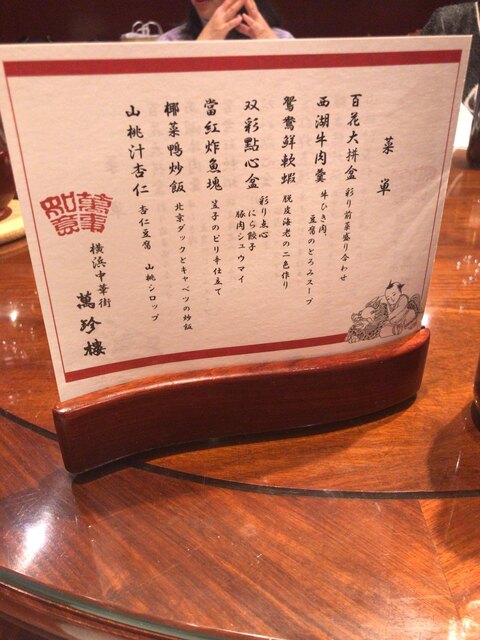 菜単
百花大拼盒 彩り前菜盛り合わせ
西湖牛肉羹 牛ひき肉
豆腐のとろみスープ
鴛鴦鮮軟蝦 脱皮海老の二色作り
双彩點心盒 彩り点心
にら餃子
豚肉シュウマイ
當紅炸魚塊 笠子のピリ辛仕立て
椰菜鴨炒飯 北京ダックとキャベツの炒飯
山桃汁杏仁 杏仁豆腐 山桃シロップ
萬事如意
横浜中華街
萬珍樓